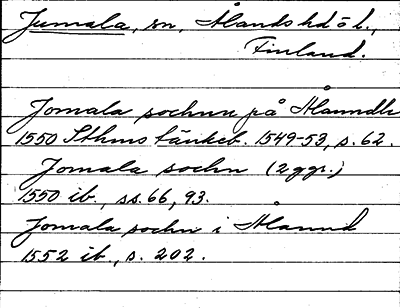 Jumala, sn, Ålands hd o l.,
Finland.
Jomala sochnn på Ålanndh
1550 Sthms tänkeb. 1549-53, s. 62.
Jomala sochn (2 ggr.)
1550 ib., ss. 66, 93.
Jomala sochn i Ålannd
1552 ib., s. 202.